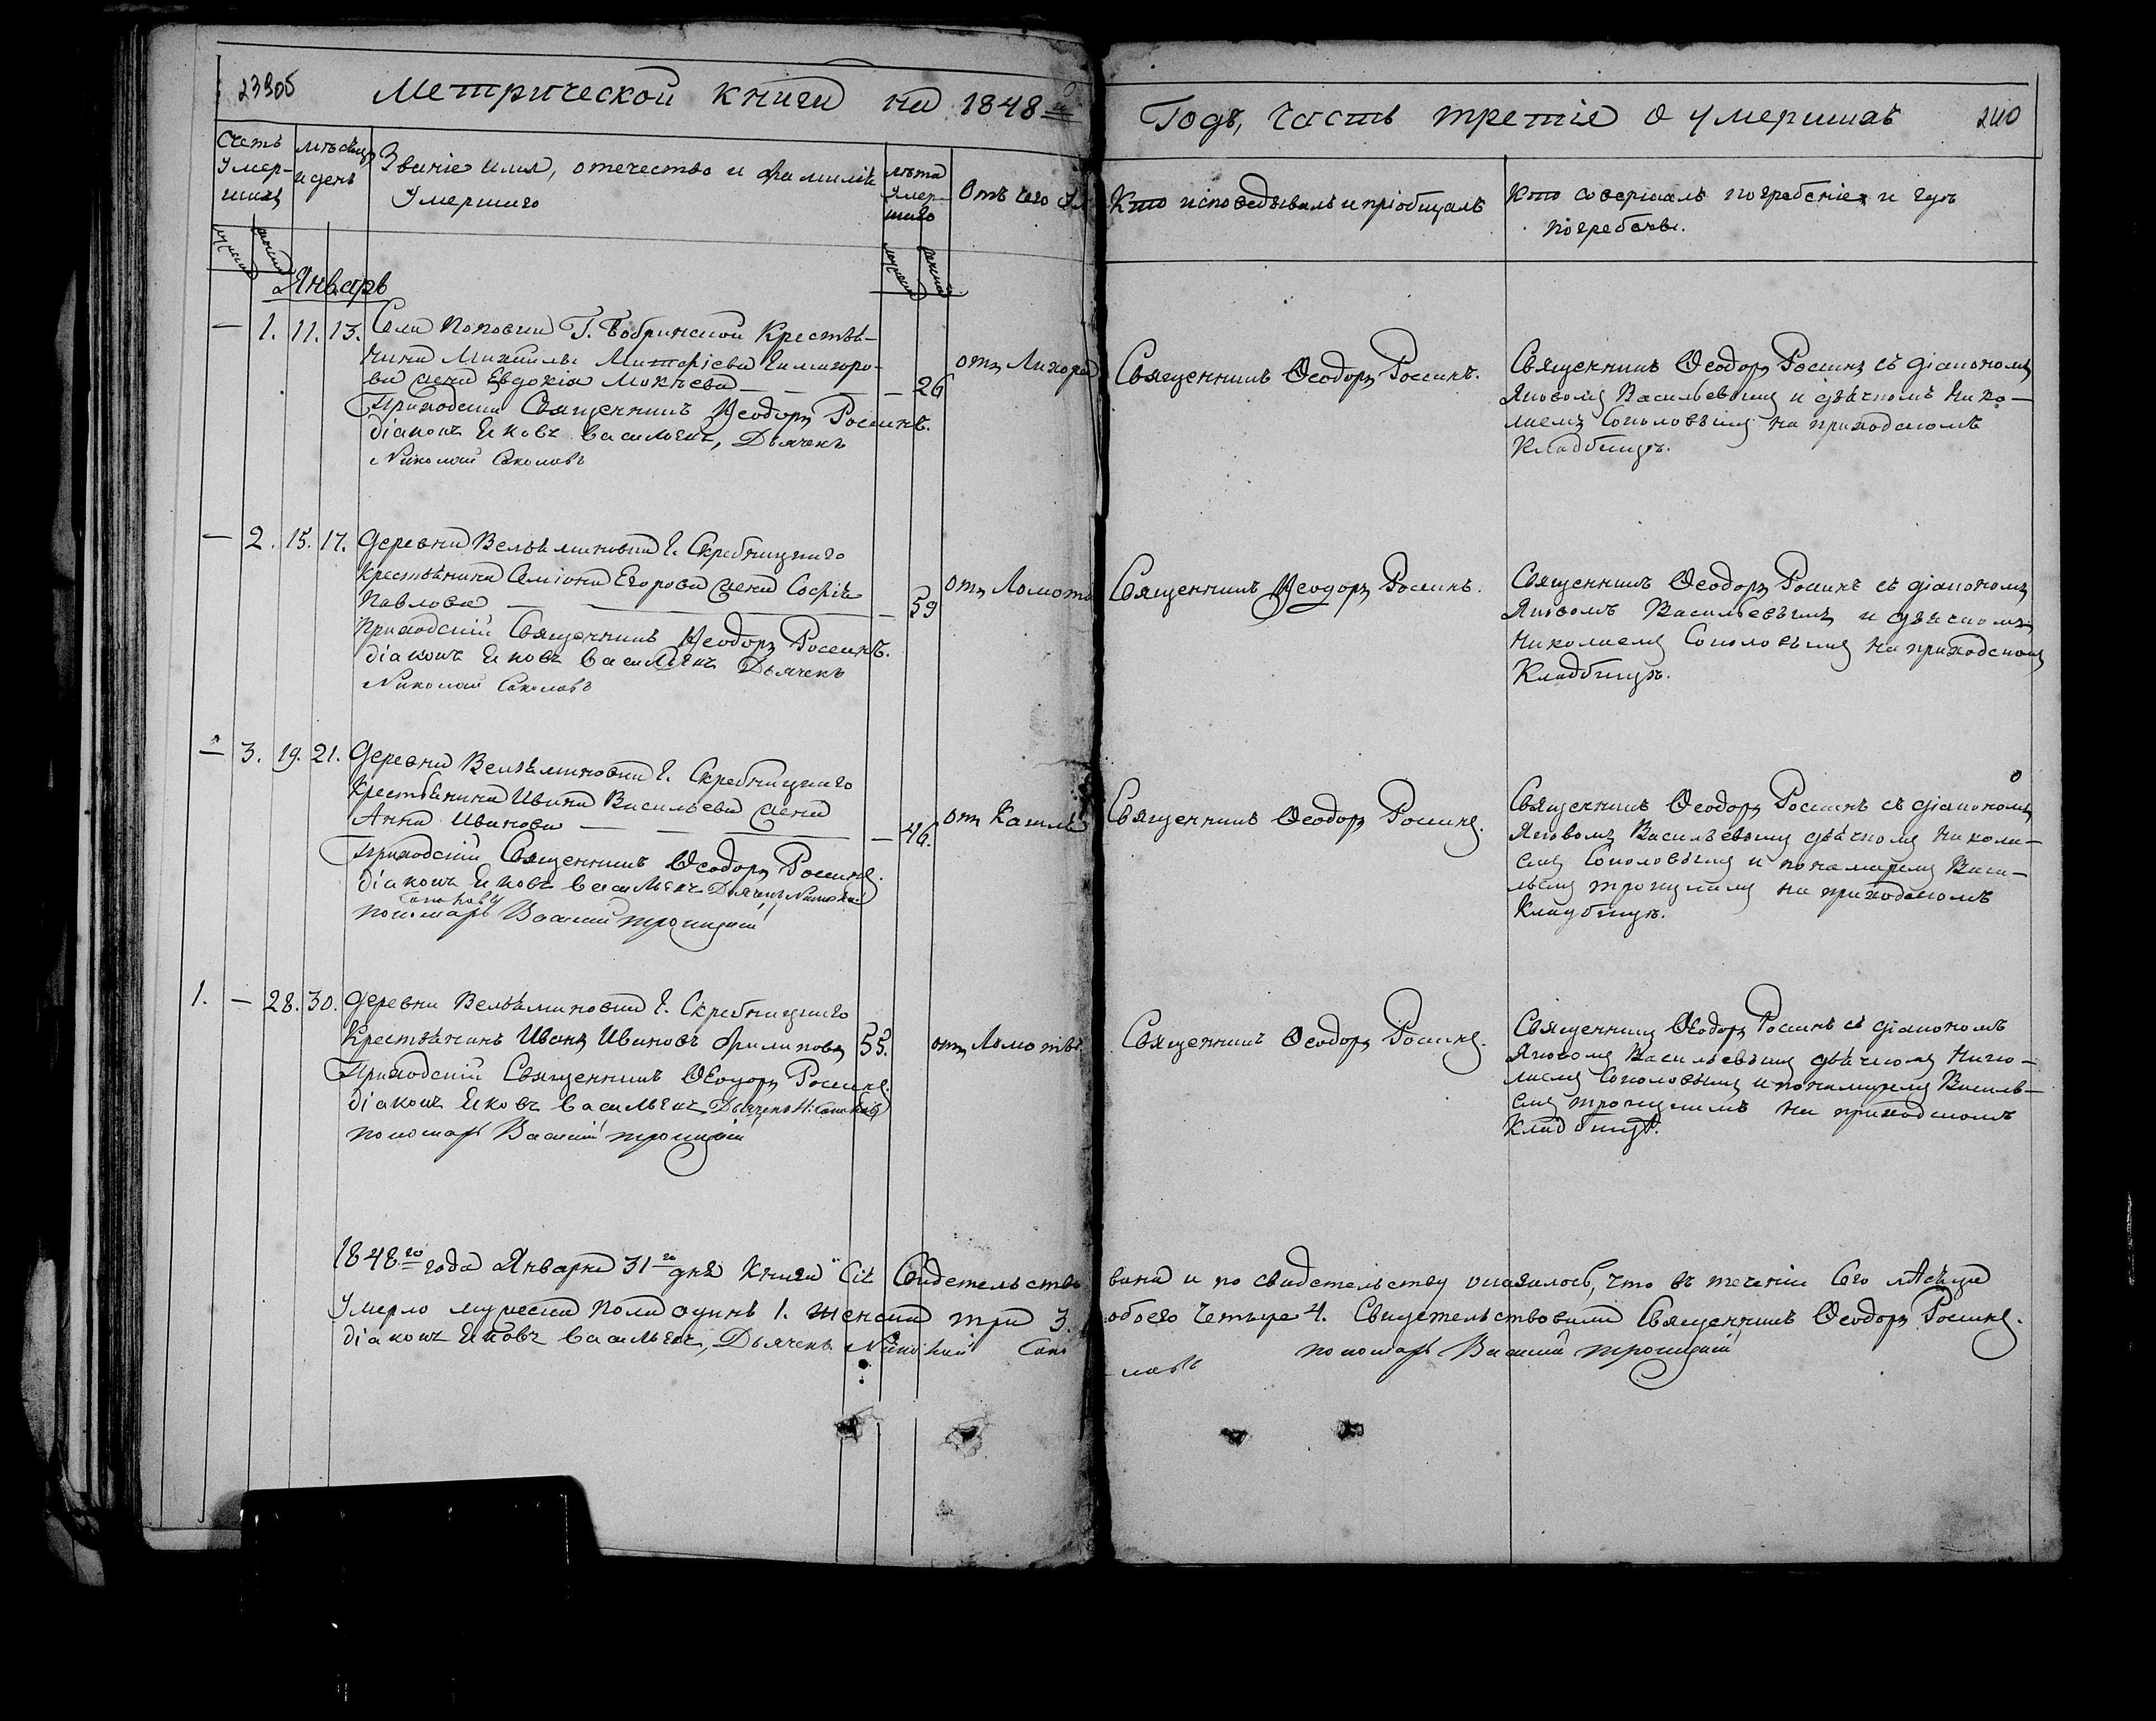 Метрической книги на 1848й
Годъ, часть третія о умершихъ 240
Счетъ умер-шихъ
мѣсяцъ и день
Званіе имя, отечество и фамилія
Умершаго
лѣта Умер-шаго
Отъ чего
Кто исповедывалъ и пріобщалъ
Кто совершалъ погребеніе и гдѣ
погребены.
Январь
— 1. 11. 13. Села Поповки Г. Бобринской Крестья-
нина Михаила
ва жена Евдокія Мокѣева — — 26
Приходскій Священникъ Ѳеодоръ Россинъ.
діаконъ Іяковъ Васильевъ, Дьячекъ
Николай Соколовъ
Священникъ Ѳеодоръ Россинъ.
Священникъ Ѳеодоръ Россинъ съ діакономъ
Яковомъ Васильевымъ и дьячкомъ Нико-
лаемъ Соколовымъ на приходскомъ
Кладбищѣ.
— 2. 15. 17. Деревни Вельяминовки Г. Скребицкаго
крестьянина Семіона Егорова жена Софія
Павлова — — 59
отъ Ломоты
Приходскій Священникъ Ѳеодоръ Россинъ.
діаконъ Іяковъ Васильевъ Дьячекъ
Николай Соколовъ
Священникъ Ѳеодоръ Россинъ.
Священникъ Ѳеодоръ Россинъ съ діакономъ
Яковомъ Васильевымъ и дьячкомъ
Николаемъ Соколовымъ на приходскомъ
Кладбищѣ.
— 3. 19. 21. Деревни Вельяминовки Г. Скребицкаго
Крестьянина Ивана Васильева жена
Анна Иванова — — 46.
отъ Кашля
Приходскій Священникъ Ѳеодоръ Россинъ.
діаконъ Іяковъ Васильевъ Дьячекъ Николай
Соколовъ
пономарь Василій Троицкій
Священникъ Ѳеодоръ Россинъ.
Священникъ Ѳеодоръ Россинъ съ діакономъ
Яковомъ Васильевымъ дьячкомъ Никола-
емъ Соколовымъ и пономаремъ Васи-
льемъ Троицкимъ на приходскомъ
Кладбищѣ.
1. — 28. 30. Деревни Вельяминовки Г. Скребицкаго
Крестьянинъ Иванъ Ивановъ Филиповъ 55.
отъ Ломоты.
Приходскій Священникъ Ѳеодоръ Россинъ.
діаконъ Іяковъ Васильевъ Дьячекъ Н. Соколовъ
пономарь Василій Троицкій
Священникъ Ѳеодоръ Россинъ.
Священникъ Ѳеодоръ Россинъ съ діакономъ
Яковомъ Васильевымъ дьячкомъ Нико-
лаемъ Соколовымъ и пономаремъ Василь-
емъ Троицкимъ на приходскомъ
Кладбищѣ.
1848го года Января 31го дня Книги Сіи Свидетельство
вана и по свидетельству оказалось, что въ теченіи Сего мѣсяца
Умерло мужеска пола одинъ 1. женска три 3.
обоего Четыре 4. Свидетельствовали Священникъ Ѳеодоръ Россинъ.
діаконъ Іяковъ Васильевъ, Дьячекъ Николай Соко
ловъ пономарь Василій Троицкій